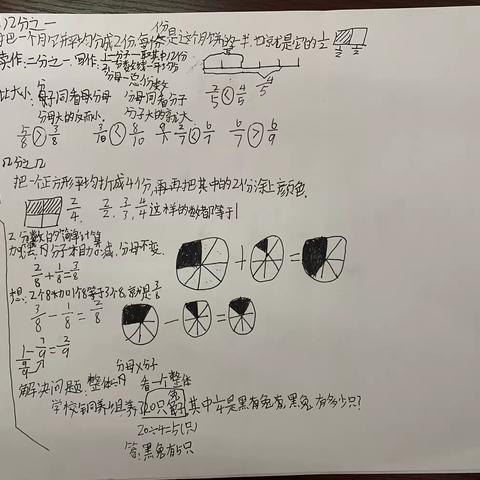 几分之一
把一个月饼平均分成2份,每份是这个月饼的一半,也就是它的1/2 1/2 1/2
读作:二分之一,写作:1/2 分子—取其中1份
分母—总份数
2/5 < 4/5 4/5
比大小:分子同看分母 分母同看分子
分母大的反而小 分子大的就大
5/8 > 3/8 3/10 < 8/10 2/7 < 6/7 6/7 > 6/9
几分之几
把一个正方形平均折成4份,再把其中的2份涂上颜色
2/4, 2/2, 3/3, 4/4 这样的数都等于1
分数的简单计算
加减法,分子相加减,分母不变
2/8 + 1/8 = 3/8
想:2个1/8加1个1/8等于3个1/8,就是3/8
3/8 - 1/8 = 2/8
1 - 7/9 = 2/9
9/9
分母 分子
解决问题:整体 看一个整体
学校饲养组养了20只兔,其中1/4是黑兔,黑兔有多少只?
20÷4=5(只)
答:黑兔有5只